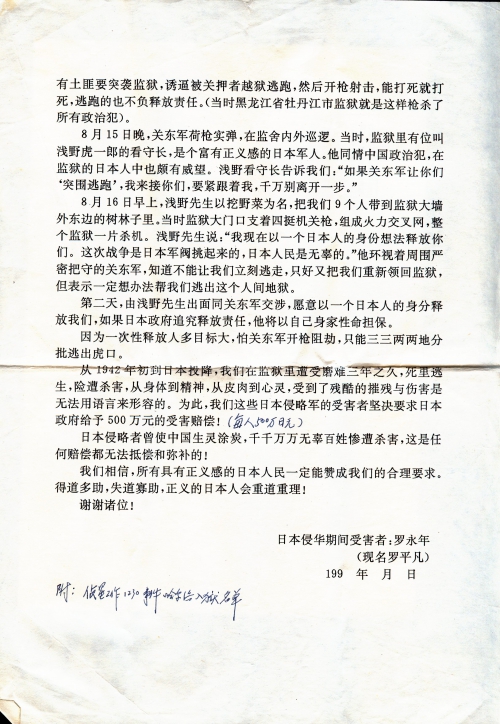 有土匪要突袭监狱，诱逼被关押者越狱逃跑，然后开枪射击，能打死就打
死，逃跑的也不负释放责任。（当时黑龙江省牡丹江市监狱就是这样枪杀了
所有政治犯）。
8月15日晚，关东军荷枪实弹，在监舍内外巡逻。当时，监狱里有位叫
浅野虎一郎的看守长，是个富有正义感的日本军人。他同情中国政治犯，在
监狱的日本人中也颇有威望。浅野看守长告诉我们：“如果关东军让你们
‘突围逃跑’，我来接你们，要紧跟着我，千万别离开一步。”
8月16日早上，浅野先生以挖野菜为名，把我们9个人带到监狱大墙
外东边的树林子里。当时监狱大门口支着四挺机关枪，组成火力交叉网，整
个监狱一片杀机。浅野先生说：“我现在以一个日本人的身份想法释放你
们。这次战争是日本军阀挑起来的，日本人民是无辜的。”他环视着周围严
密把守的关东军，知道不能让我们立刻逃走，只好又把我们重新领回监狱，
但表示一定想办法帮我们逃出这个人间地狱。
第二天，由浅野先生出面同关东军交涉，愿意以一个日本人的身分释
放我们，如果日本政府追究释放责任，他将以自己身家性命担保。
因为一次性释放人多目标大，怕关东军开枪阻劫，只能三三两两地分
批逃出虎口。
从1942年初到日本投降，我们在监狱里遭受磨难三年之久，死里逃
生，险遭杀害，从身体到精神，从皮肉到心灵，受到了残酷的摧残与伤害是
无法用语言来形容的。为此，我们这些日本侵略军的受害者坚决要求日本
政府给于500万元的受害赔偿！（每人500万日元）
日本侵略者曾使中国生灵涂炭，千千万万无辜百姓惨遭杀害，这是任
何赔偿都无法抵偿和弥补的！
我们相信，所有具有正义感的日本人民一定能赞成我们的合理要求。
得道多助，失道寡助，正义的日本人会重道重理！
谢谢诸位！
日本侵华期间受害者：罗永年
（现名罗平凡）
199 年 月 日
附： 1230事件 入狱名单